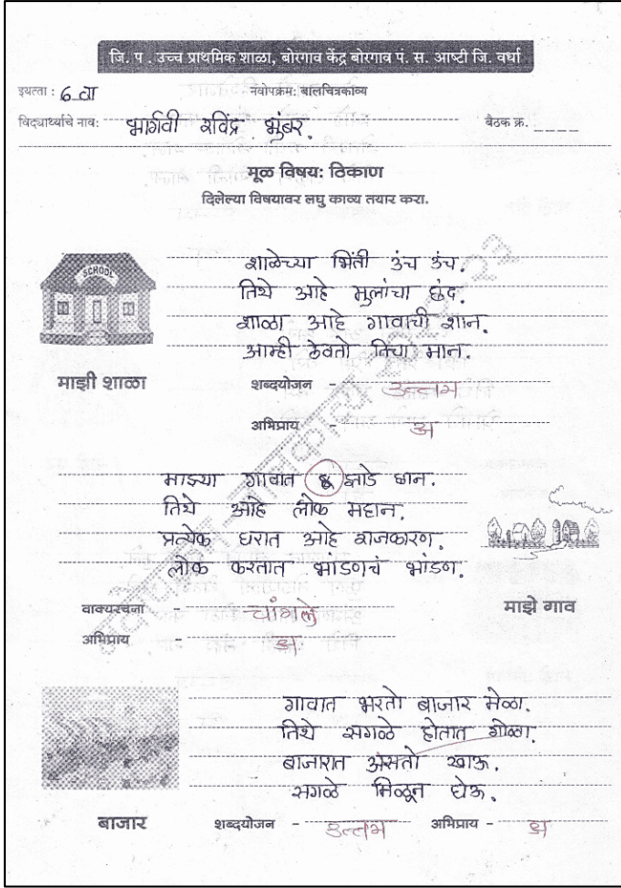 जि. प . उच्च प्राथमिक शाळा, बोरगाव केंद्र बोरगाव पं. स. आष्टी जि. वर्धा
इयत्ता : 6 वा नवोपक्रम: बालचित्रकाव्य
विद्यार्थ्याचे नाव: भार्गवी रविंद्र भुंबर. बैठक क्र. ____
मूळ विषय: ठिकाण
दिलेल्या विषयावर लघु काव्य तयार करा.
SCHOOL
शाळेच्या भिंती उंच उंच.
तिथे आहे मुलांचा छंद.
शाळा आहे गावाची शान.
आम्ही ठेवतो तिचा मान.
माझी शाळा
शब्दयोजन - उत्तम
अभिप्राय - अ
माझ्या गावात झाडे छान.
तिथे आहे लोक महान.
प्रत्येक घरात आहे राजकारण.
लोक करतात भांडणचं भांडण.
माझे गाव
वाक्यरचना - चांगले
अभिप्राय - अ
गावात भरतो बाजार मेळा.
तिथे सगळे होतात गोळा.
बाजारात असतो खाऊ.
सगळे मिळून घेऊ.
बाजार शब्दयोजन - उत्तम अभिप्राय - अ